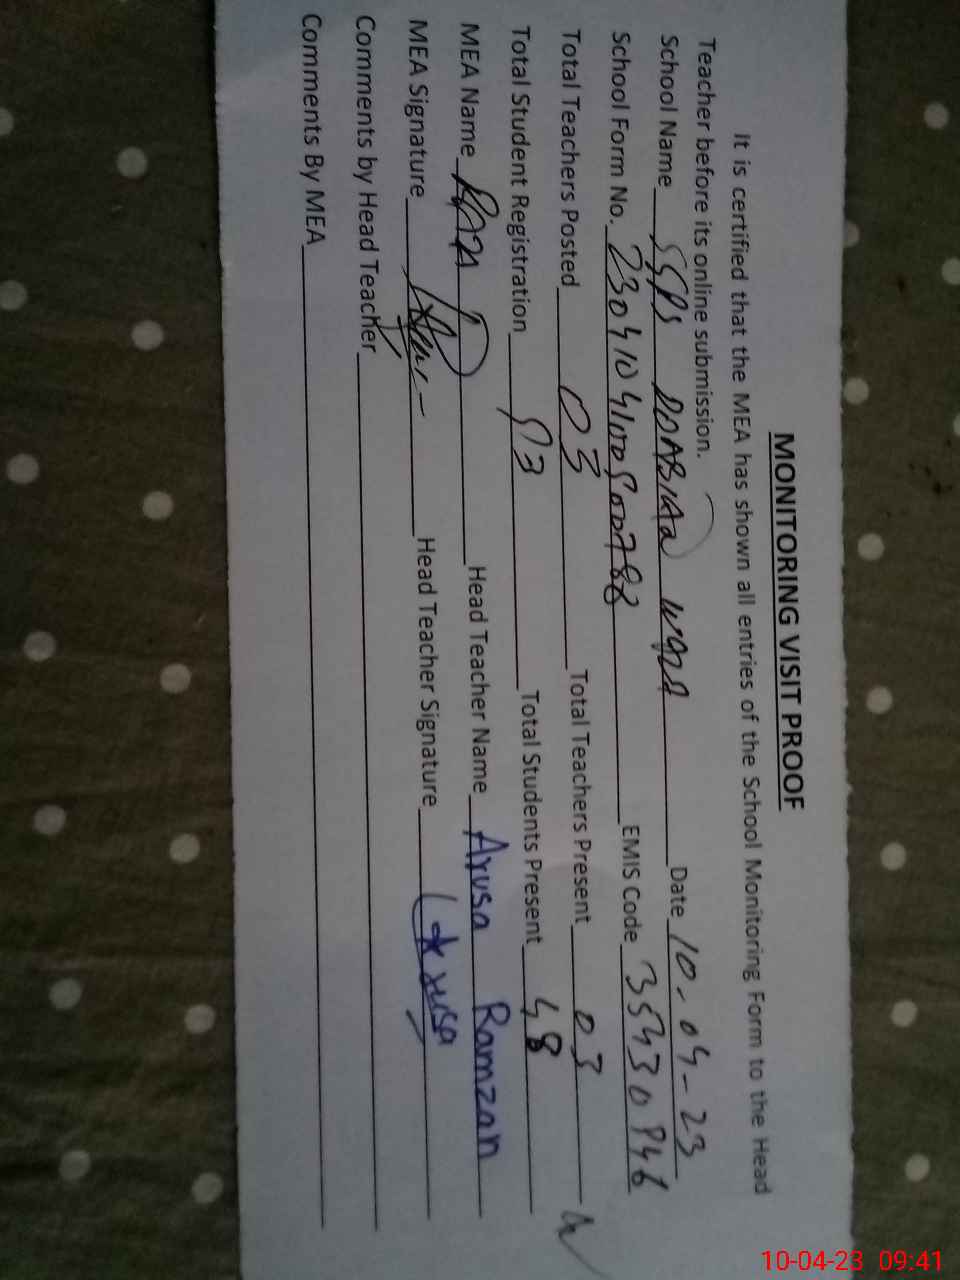 MONITORING VISIT PROOF
It is certified that the MEA has shown all entries of the School Monitoring Form to the Head
Teacher before its online submission.
School Name Date 10-04-23
School Form No. EMIS Code
Total Teachers Posted 03 Total Teachers Present 03
Total Student Registration Total Students Present 48
MEA Name Head Teacher Name Arusa Ramzan
MEA Signature Head Teacher Signature Arusa
Comments by Head Teacher
Comments By MEA
10-04-23 09:41